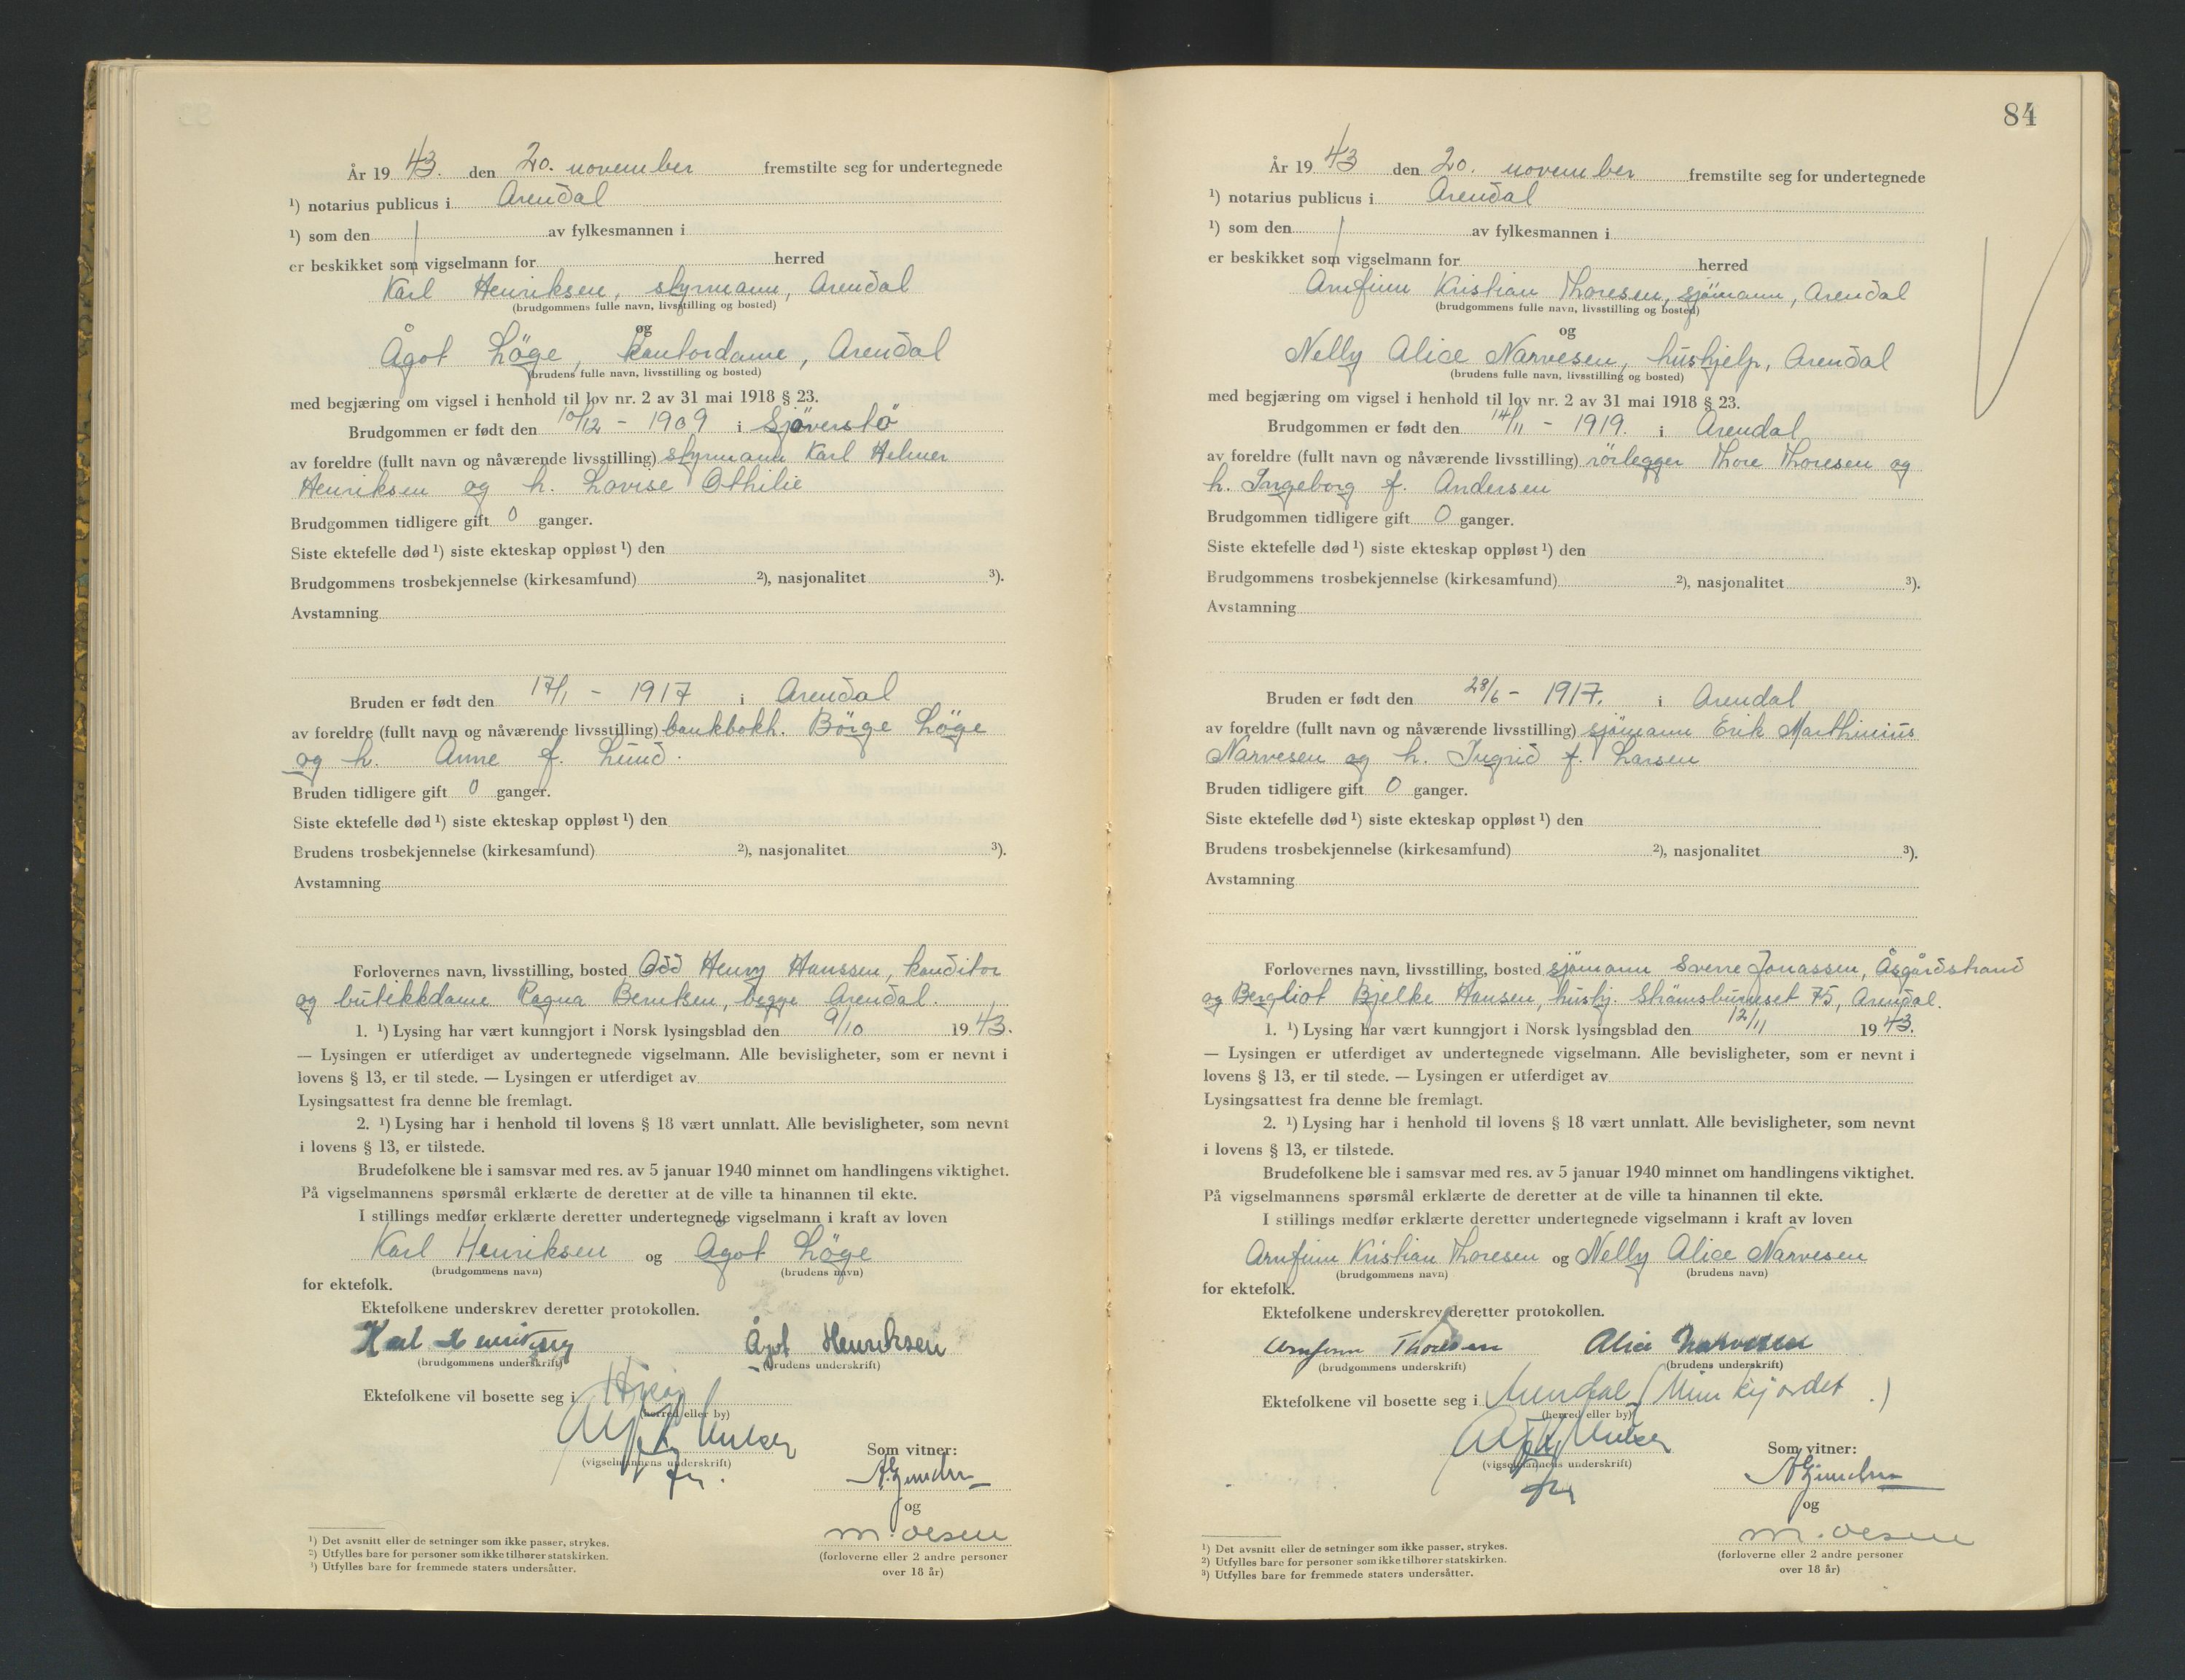 År 19 43. den 20. november fremstilte seg for undertegnede
¹) notarius publicus i Arendal
¹) som den av fylkesmannen i
er beskikket som vigselmann for herred
Karl Henriksen, styrmann, Arendal
(brudgommens fulle navn, livsstilling og bosted)
og
Ågot Löge, kontordame, Arendal
(brudens fulle navn, livsstilling og bosted)
med begjæring om vigsel i henhold til lov nr. 2 av 31 mai 1918 § 23.
Brudgommen er født den 10/12 - 1909 i Sjöverstö
av foreldre (fullt navn og nåværende livsstilling) styrmann Karl Helmer
Henriksen og h. Lovise Othilie
Brudgommen tidligere gift 0 ganger.
Siste ektefelle død ¹) siste ekteskap oppløst ¹) den
Brudgommens trosbekjennelse (kirkesamfund) ²), nasjonalitet ³).
Avstamning
Bruden er født den 17/1 - 1917 i Arendal
av foreldre (fullt navn og nåværende livsstilling) bankbokh. Börge Löge
og h. Anne f. Lund.
Bruden tidligere gift 0 ganger.
Siste ektefelle død ¹) siste ekteskap oppløst ¹) den
Brudens trosbekjennelse (kirkesamfund) ²), nasjonalitet ³).
Avstamning
Forlovernes navn, livsstilling, bosted Odd Henry Hanssen, konditor
og butikkdame Ragna Berntsen, begge Arendal.
1. ¹) Lysing har vært kunngjort i Norsk lysingsblad den 9/10 19 43.
— Lysingen er utferdiget av undertegnede vigselmann. Alle bevisligheter, som er nevnt i
lovens § 13, er til stede. — Lysingen er utferdiget av
Lysingsattest fra denne ble fremlagt.
2. ¹) Lysing har i henhold til lovens § 18 vært unnlatt. Alle bevisligheter, som nevnt
i lovens § 13, er tilstede.
Brudefolkene ble i samsvar med res. av 5 januar 1940 minnet om handlingens viktighet.
På vigselmannens spørsmål erklærte de deretter at de ville ta hinannen til ekte.
I stillings medfør erklærte deretter undertegnede vigselmann i kraft av loven
Karl Henriksen og Ågot Löge
(brudgommens navn) (brudens navn)
for ektefolk.
Ektefolkene underskrev deretter protokollen.
Karl Henriksen Ågot Henriksen
(brudgommens underskrift) (brudens underskrift)
Ektefolkene vil bosette seg i
(herred eller by)
(vigselmannens underskrift)
Som vitner:
og
M. Olsen
(forloverne eller 2 andre personer
over 18 år)
¹) Det avsnitt eller de setninger som ikke passer, strykes.
²) Utfylles bare for personer som ikke tilhører statskirken.
³) Utfylles bare for fremmede staters undersåtter.
84
År 19 43 den 20. november fremstilte seg for undertegnede
¹) notarius publicus i Arendal
¹) som den av fylkesmannen i
er beskikket som vigselmann for herred
Arnfinn Kristian Thoresen, sjömann, Arendal
(brudgommens fulle navn, livsstilling og bosted)
og
Nelly Alice Narvesen, hushjelp, Arendal
(brudens fulle navn, livsstilling og bosted)
med begjæring om vigsel i henhold til lov nr. 2 av 31 mai 1918 § 23.
Brudgommen er født den 14/11 - 1919. i Arendal
av foreldre (fullt navn og nåværende livsstilling) rörlegger Thore Thoresen og
h. Ingeborg f. Andersen
Brudgommen tidligere gift 0 ganger.
Siste ektefelle død ¹) siste ekteskap oppløst ¹) den
Brudgommens trosbekjennelse (kirkesamfund) ²), nasjonalitet ³).
Avstamning
Bruden er født den 28/6 - 1917. i Arendal
av foreldre (fullt navn og nåværende livsstilling) sjömann Erik Marthinius
Narvesen og h. Ingrid f. Larsen
Bruden tidligere gift 0 ganger.
Siste ektefelle død ¹) siste ekteskap oppløst ¹) den
Brudens trosbekjennelse (kirkesamfund) ²), nasjonalitet ³).
Avstamning
Forlovernes navn, livsstilling, bosted sjömann Sverre Jonassen, Åsgårdstrand
og Bergliot Bjelke Hansen, hushj. Strömsbuneset 75, Arendal.
1. ¹) Lysing har vært kunngjort i Norsk lysingsblad den 12/11 19 43.
— Lysingen er utferdiget av undertegnede vigselmann. Alle bevisligheter, som er nevnt i
lovens § 13, er til stede. — Lysingen er utferdiget av
Lysingsattest fra denne ble fremlagt.
2. ¹) Lysing har i henhold til lovens § 18 vært unnlatt. Alle bevisligheter, som nevnt
i lovens § 13, er tilstede.
Brudefolkene ble i samsvar med res. av 5 januar 1940 minnet om handlingens viktighet.
På vigselmannens spørsmål erklærte de deretter at de ville ta hinannen til ekte.
I stillings medfør erklærte deretter undertegnede vigselmann i kraft av loven
Arnfinn Kristian Thoresen og Nelly Alice Narvesen
(brudgommens navn) (brudens navn)
for ektefolk.
Ektefolkene underskrev deretter protokollen.
Arnfinn Thoresen Alice Narvesen
(brudgommens underskrift) (brudens underskrift)
Ektefolkene vil bosette seg i Arendal
(herred eller by)
(vigselmannens underskrift)
Som vitner:
og
M. Olsen
(forloverne eller 2 andre personer
over 18 år)
¹) Det avsnitt eller de setninger som ikke passer, strykes.
²) Utfylles bare for personer som ikke tilhører statskirken.
³) Utfylles bare for fremmede staters undersåtter.